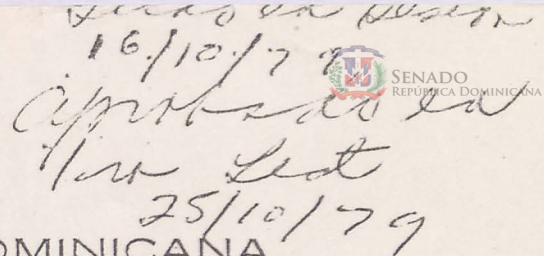 en
16/10/79
SENADO
REPÚBLICA DOMINICANA
aprobado en
1ra Lect
25/10/79
DOMINICANA